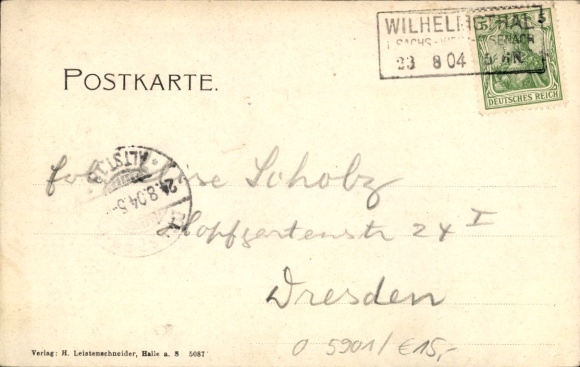 WILHELMSTHAL
SACHS-
EISENACH
23 8 04 5-6N
DEUTSCHES REICH
POSTKARTE.
ALTST.
24.8.04.5-
Scholz
Hopfgartenstr 24 I
Dresden
O 5901/€15,-
Verlag: H. Leistenschneider, Halle a. S 5087